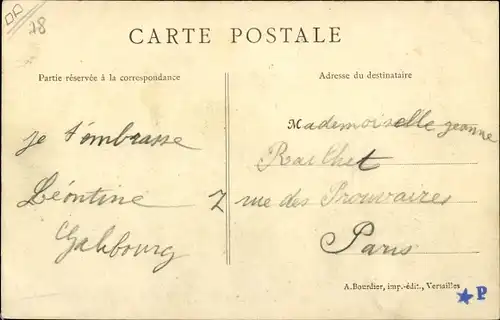 78
CARTE POSTALE
Partie réservée à la correspondance
Adresse du destinataire
je t'embrasse
Léontine
Galibourg
Mademoiselle Jeanne
Raillet
7 rue des Prouvaires
Paris
A. Bourdier, imp.-édit., Versailles
★P